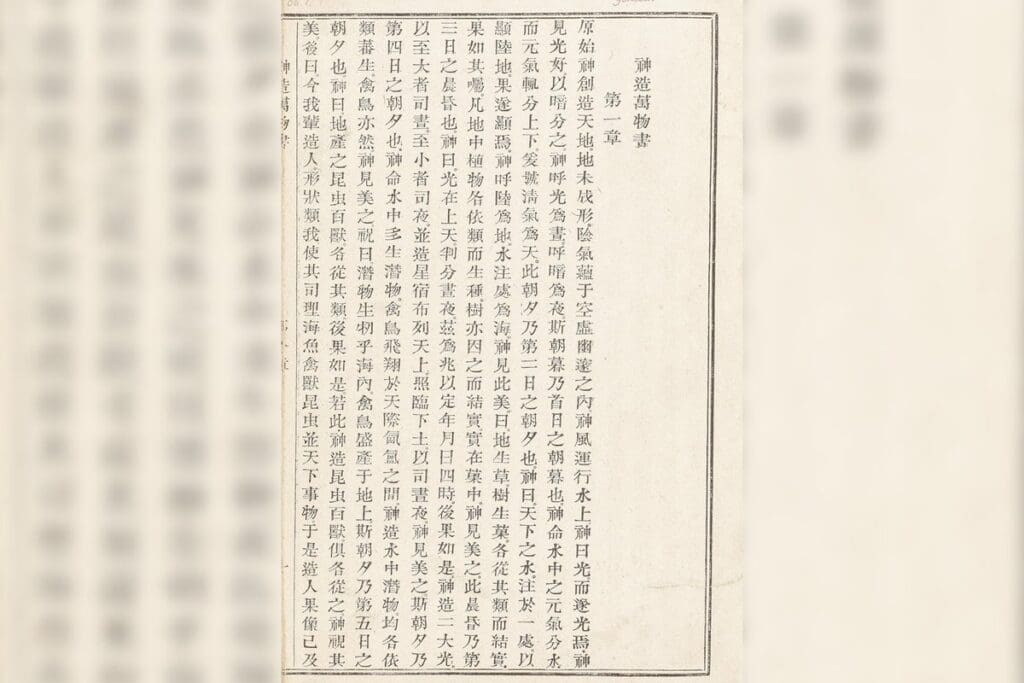 神造萬物書
第一章
原始神創造天地地未成形陰氣蘊于空虛幽邃之內神風運行水上神曰光而遂光焉神
見光好以暗分之神呼光爲晝呼暗爲夜斯朝暮乃首日之朝暮也神命水中之元氣分水
而元氣輒分上下爰號淸氣爲天此朝夕乃第二日之朝夕也神曰天下之水注於一處以
顯陸地果遂顯焉神呼陸爲地水注處爲海神見此美曰地生草樹生菓各從其類而結實
果如其囑凡地中植物各依類而生種樹亦因之而結實實在菓中神見美之此晨昏乃第
三日之晨昏也神曰光在上天判分晝夜茲爲兆以定年月日四時後果如是神造二大光
以至大者司晝至小者司夜並造星宿布列天上照臨下土以司晝夜神見美之斯朝夕乃
第四日之朝夕也神命水中多生潛物禽鳥飛翔於天際氤氳之間神造水中潛物均各依
類蕃生禽鳥亦然神見美之祝曰潛物生牣乎海內禽鳥盛產于地上斯朝夕乃第五日之
朝夕也神曰地產之昆虫百獸各從其類後果如是若此神造昆虫百獸俱各從之神視其
美後曰今我輩造人形狀類我使其司理海魚禽獸昆虫並天下事物于是造人果像已及
神造萬物書